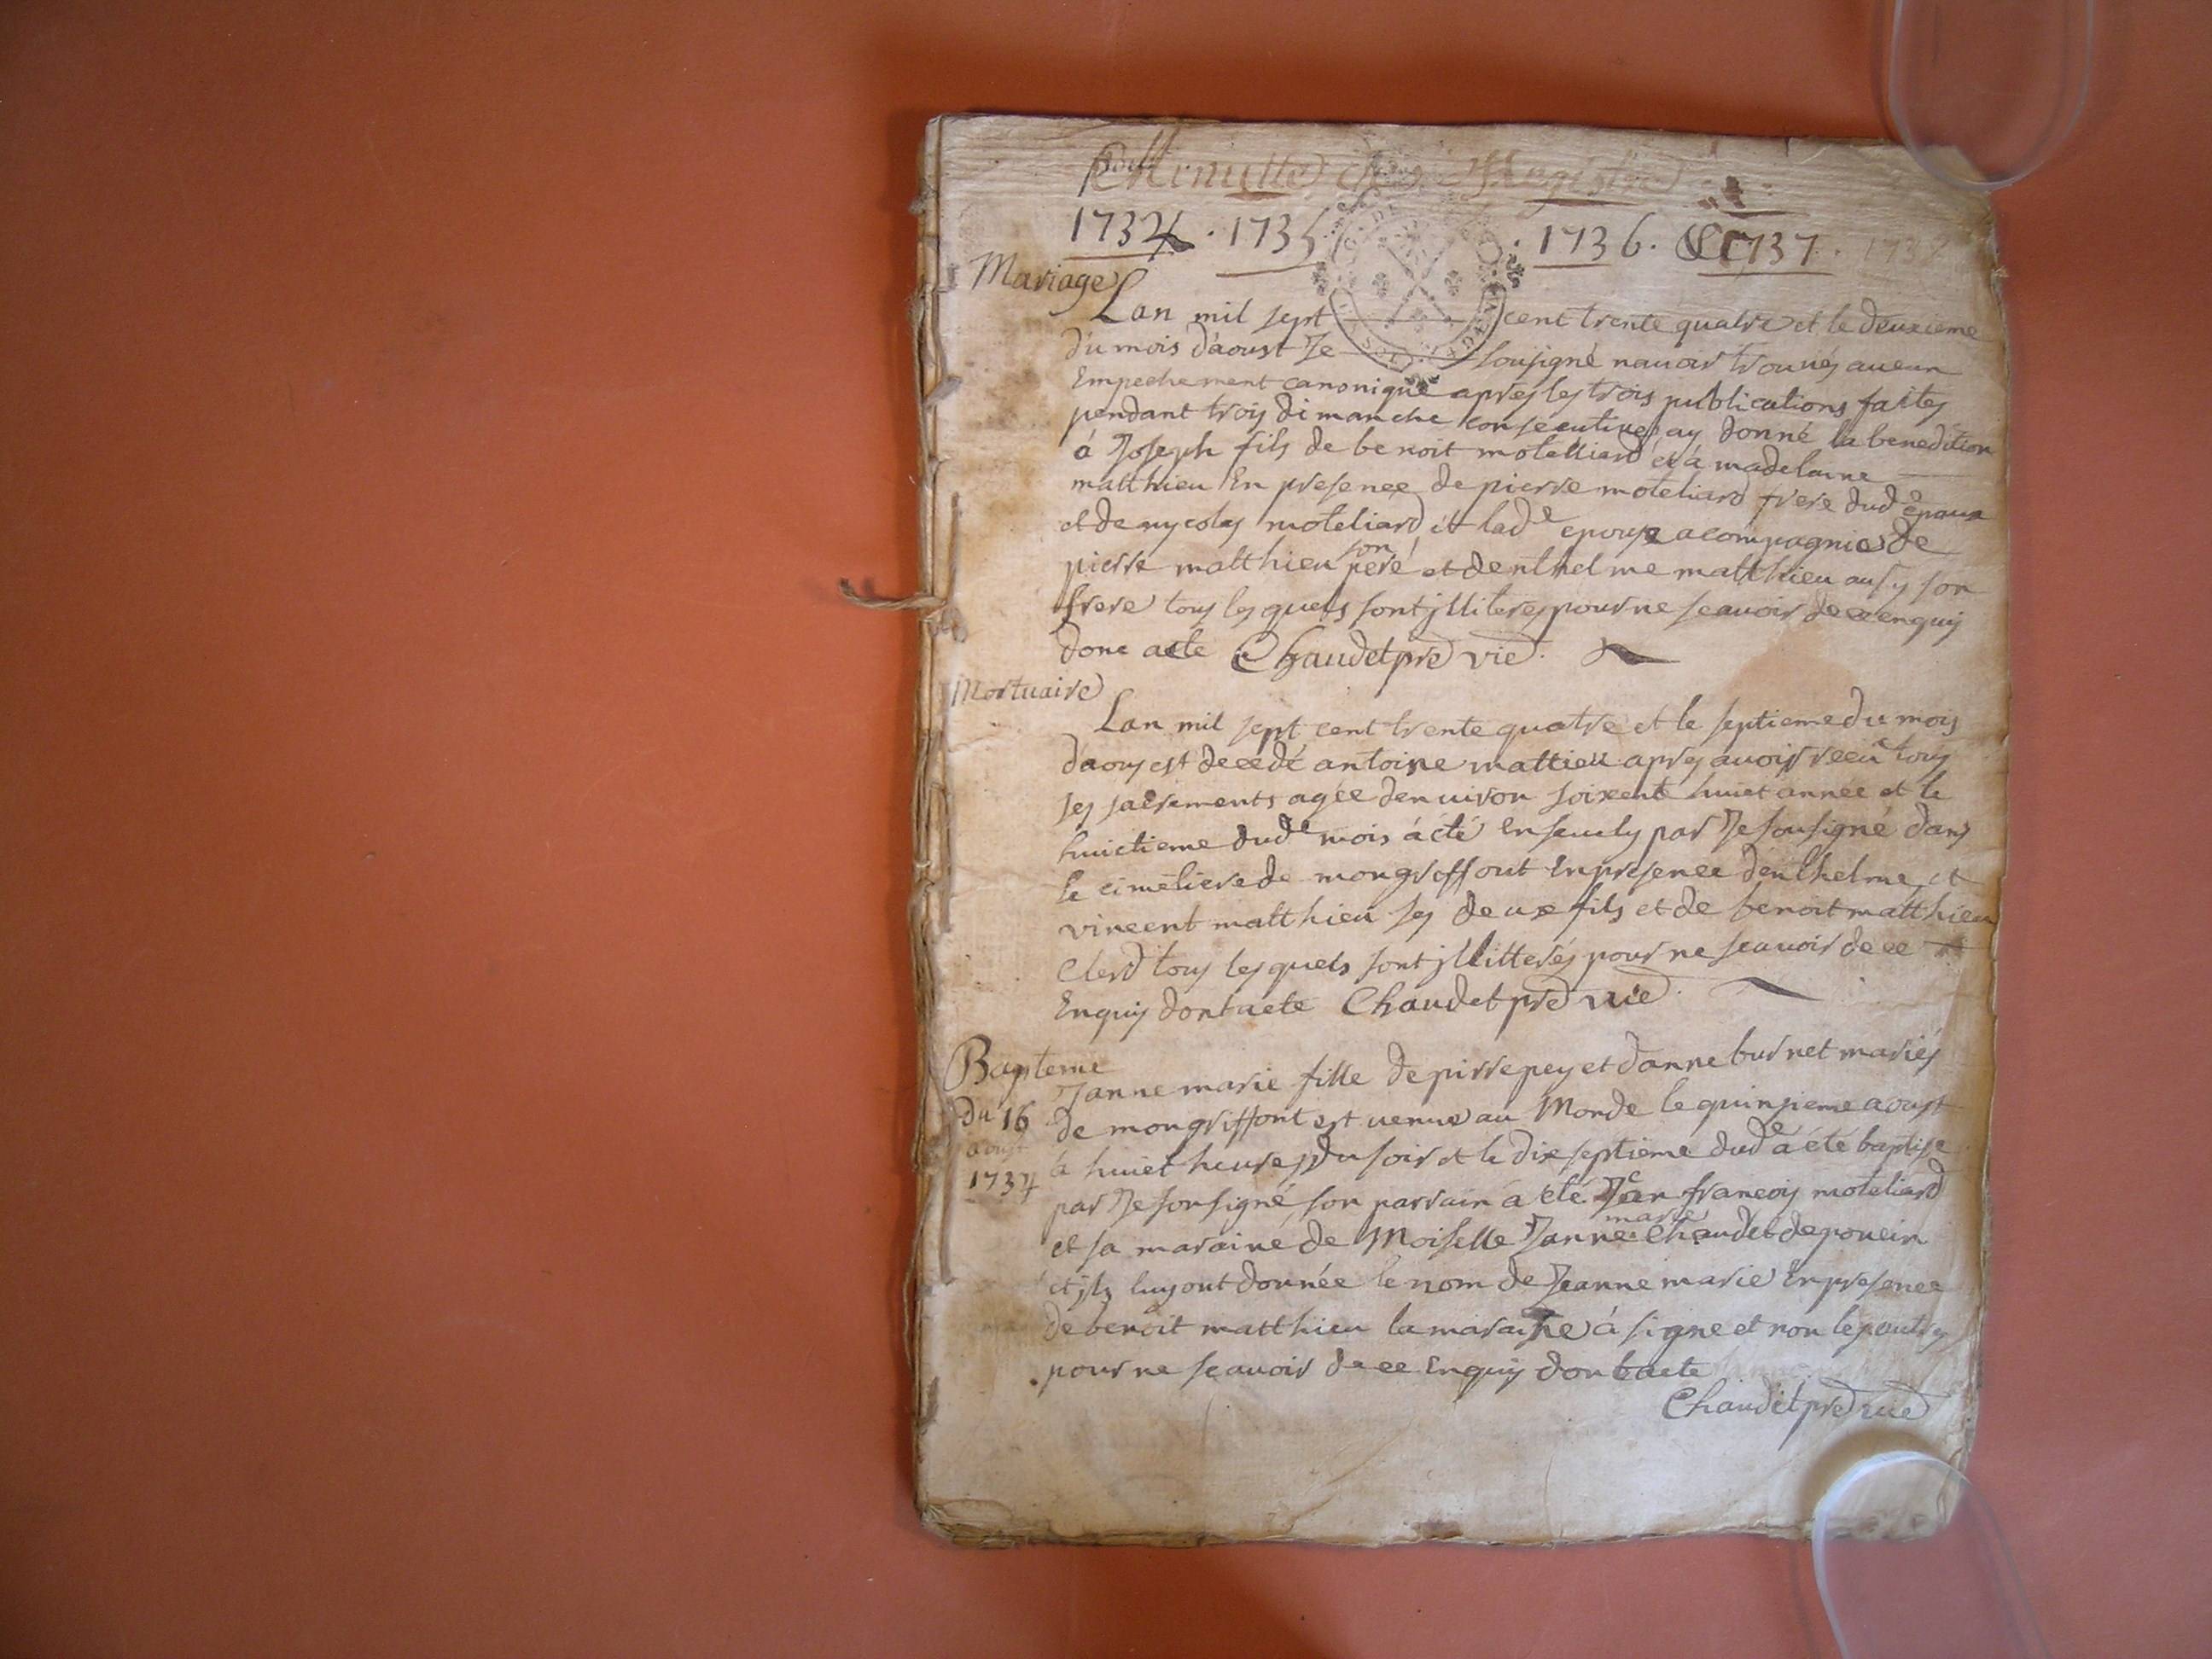 Minutte des Registre
1734 · 1735 · 1736 · & 1737 · 1738
Mariage
Lan mil sept cent trente quatre et le deuxieme
du mois d'aoust Je sousigné nauoir trouués aucun
Empechement canonique apres les trois publications faites
pendant trois dimanche consecutiues ay donné la benedition
á Joseph fils de benoit moteliard et á madelaine
matthieu En presence de pierre moteliard frere dud.e epoux
et de nycolas moteliard et lad.e epouse acompagnie de
pierre matthieu son peré et denthelme matthieu ausy son
frere tous lesquels sont jlliteres pour ne scauoir de ce enquis
donc acte Chaudet pre vic
Mortuaire
Lan mil sept cent trente quatre et le septieme du mois
d'aous est decedé antoine mattieu apres auoir receu tous
ses sacrements agée denuiron soixente huict année et le
huictieme dud.e mois á eté enseuely par Je sousigné dans
le cimetiere de mongriffont En presence denthelme et
vincent matthieu ses deux fils et de benoit matthieu
Clerd tous lesquels sont jllitterés pour ne scauoir de ce
Enquis dont acte Chaudet pre vic
Bapteme
du 16
aoust
1734
Janne marie fille de pirre pey et danne burnet mariés
de mongriffont est venue au Monde le quinsieme aoust
á huict heures du soir et le dix septieme dud.e á été baptise
par Je sousigné, son parrain á eté Jean francois moteliard
et sa maraine de Moiselle Janne marie Chaudet de poncin
et jls luy ont donnée le nom de Jeanne marie En presence
de benoit matthieu la maraine á signe et non les autres
pour ne scauoir de ce Enquis dont acte
Chaudet pre vic